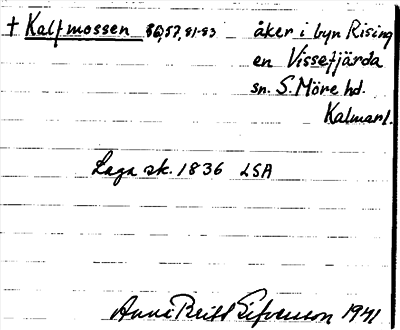 † Kalfmossen 56,57,81-83 åker i byn Rising
en Vissefjärda
sn. S. Möre hd.
Kalmar l.
Laga sk. 1836 LSA
Anna Britt 1941